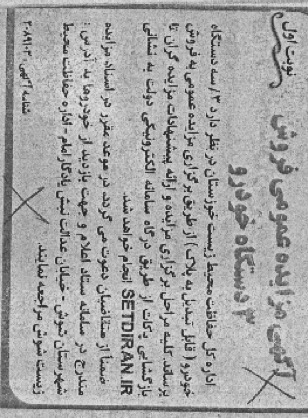 نوبت اول
آگهی مزایده عمومی فروش
۳ دستگاه خودرو
اداره کل حفاظت محیط زیست خوزستان در نظر دارد ۳/ سه دستگاه
خودرو ( قابل تبدیل به پلاک ) از طریق برگزاری مزایده عمومی به فروش
برساند. کلیه مراحل برگزاری مزایده و ارائه پیشنهادات مزایده گران تا
بازگشایی پاکات از طریق درگاه سامانه الکترونیکی دولت به نشانی
SETDIRAN.IR انجام خواهد شد.
ضمنا از متقاضیان دعوت می گردد، در موعد مقرر در اسناد مزایده
مندرج در سامانه ستاد اعلام و جهت بازدید از خودروها به آدرس :
شهرستان شوش - خیابان عدالت نبش یادگار امام - اداره حفاظت محیط
زیست شوش مراجعه نمایند.
شناسه آگهی: ۳۰۸۹۱۰۳